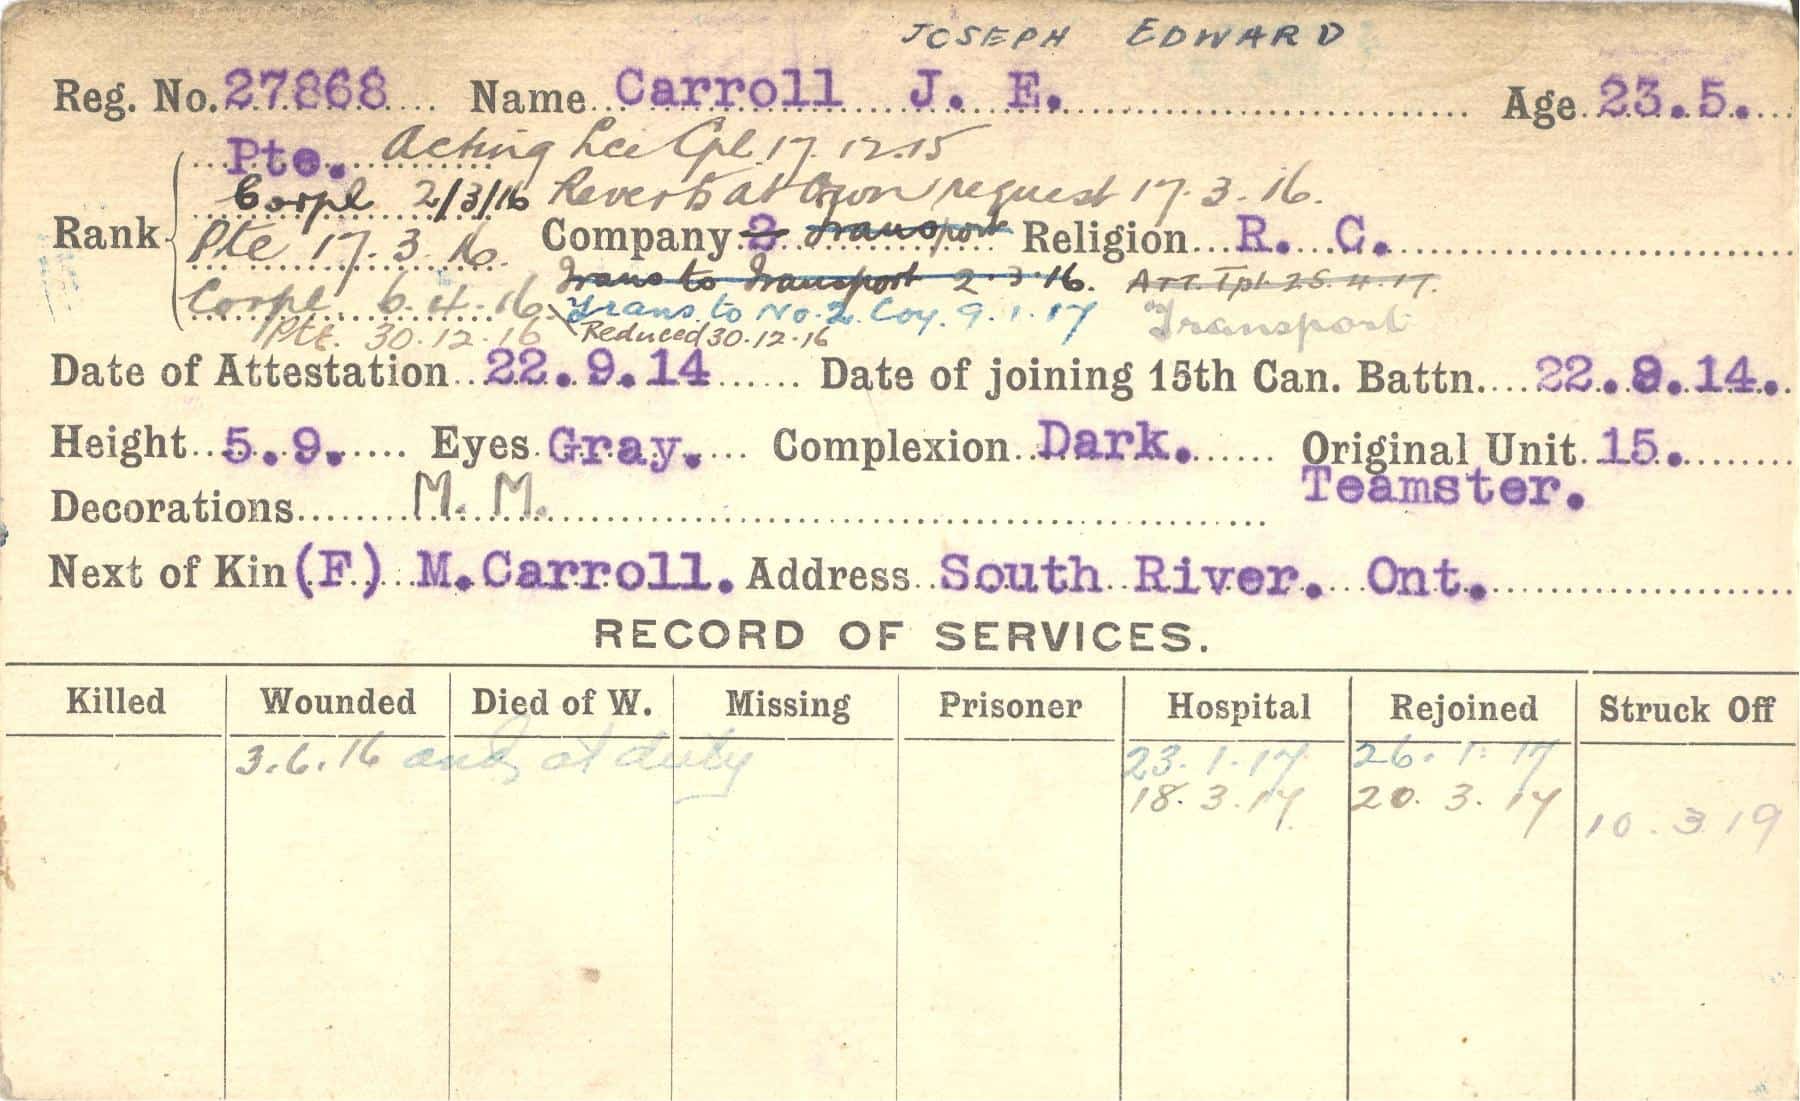 JOSEPH EDWARD
Reg. No. 27868 Name Carroll J. E. Age 23.5.
Pte. Acting Lce Cpl. 17.12.15
Corpl 2/3/16 Reverts at Own request 17.3.16.
Rank Pte 17.3.16. Company 2 Transport Religion R. C.
Trans to Transport 2.3.16. Att. Tpt. 25.4.17.
Corpl. 6.4.16. Trans to No. 2 Coy. 9.1.17 Transport
Pte. 30.12.16 Reduced 30.12.16
Date of Attestation 22.9.14 Date of joining 15th Can. Battn. 22.9.14.
Height 5.9. Eyes Gray. Complexion Dark. Original Unit 15.
Teamster.
Decorations M. M.
Next of Kin (F) M. Carroll. Address South River. Ont.
RECORD OF SERVICES.
Killed Wounded Died of W. Missing Prisoner Hospital Rejoined Struck Off
3.6.16 and at duty 23.1.17 26.1.17
18.3.17 20.3.17
10.3.19